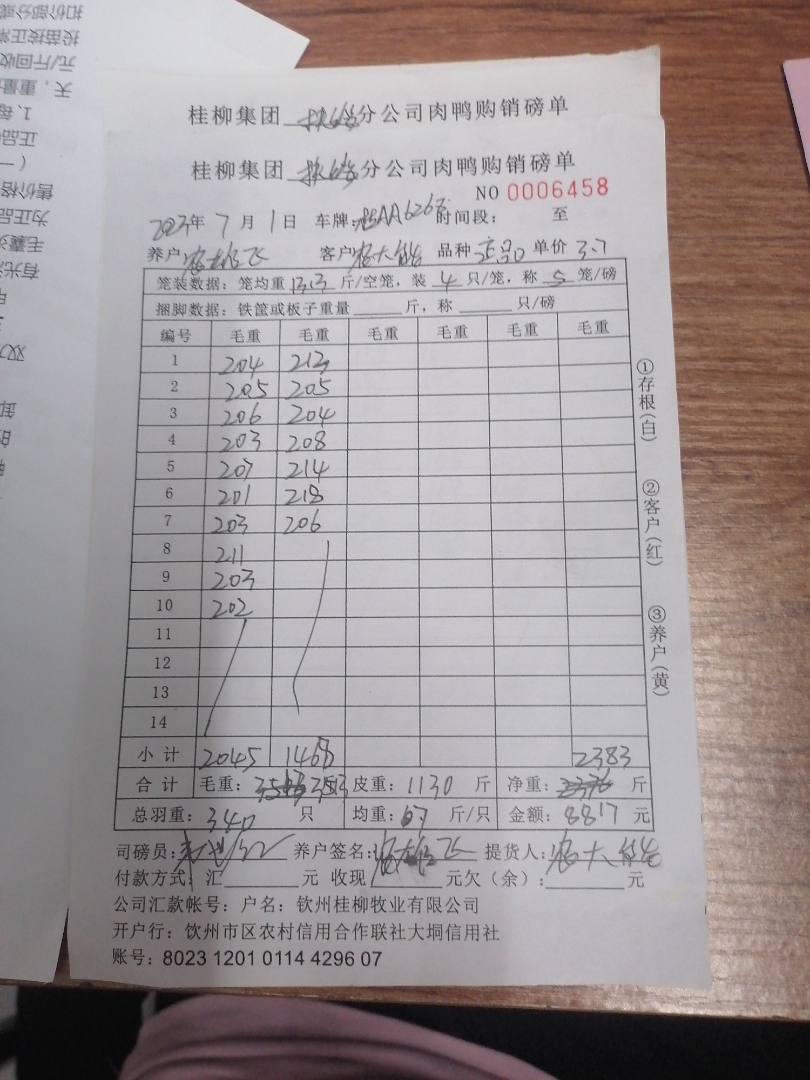 桂柳集团 分公司肉鸭购销磅单
桂柳集团 分公司肉鸭购销磅单
NO 0006458
2023年 7 月 1 日 车牌: AA6268 时间段: 至
养户 农雄飞 客户 农大能 品种 正品 单价 3.7
笼装数据: 笼均重 13.3 斤/空笼, 装 4 只/笼, 称 5 笼/磅
捆脚数据: 铁筐或板子重量 斤, 称 只/磅
编号 毛重 毛重 毛重 毛重 毛重 毛重
1 204 213
2 205 205
3 206 204
4 203 208
5 207 214
6 201 218
7 203 206
8 211
9 203
10 202
11
12
13
14
小计 2045 1468 2383
合计 毛重: 3513 皮重: 1130 斤 净重: 斤
总羽重: 340 只 均重: 6.7 斤/只 金额: 8817 元
司磅员: 养户签名: 农雄飞 提货人: 农大能
付款方式: 汇 元 收现 元欠(余): 元
公司汇款帐号: 户名: 钦州桂柳牧业有限公司
开户行: 钦州市区农村信用合作联社大垌信用社
账号: 8023 1201 0114 4296 07
①存根(白)
②客户(红)
③养户(黄)